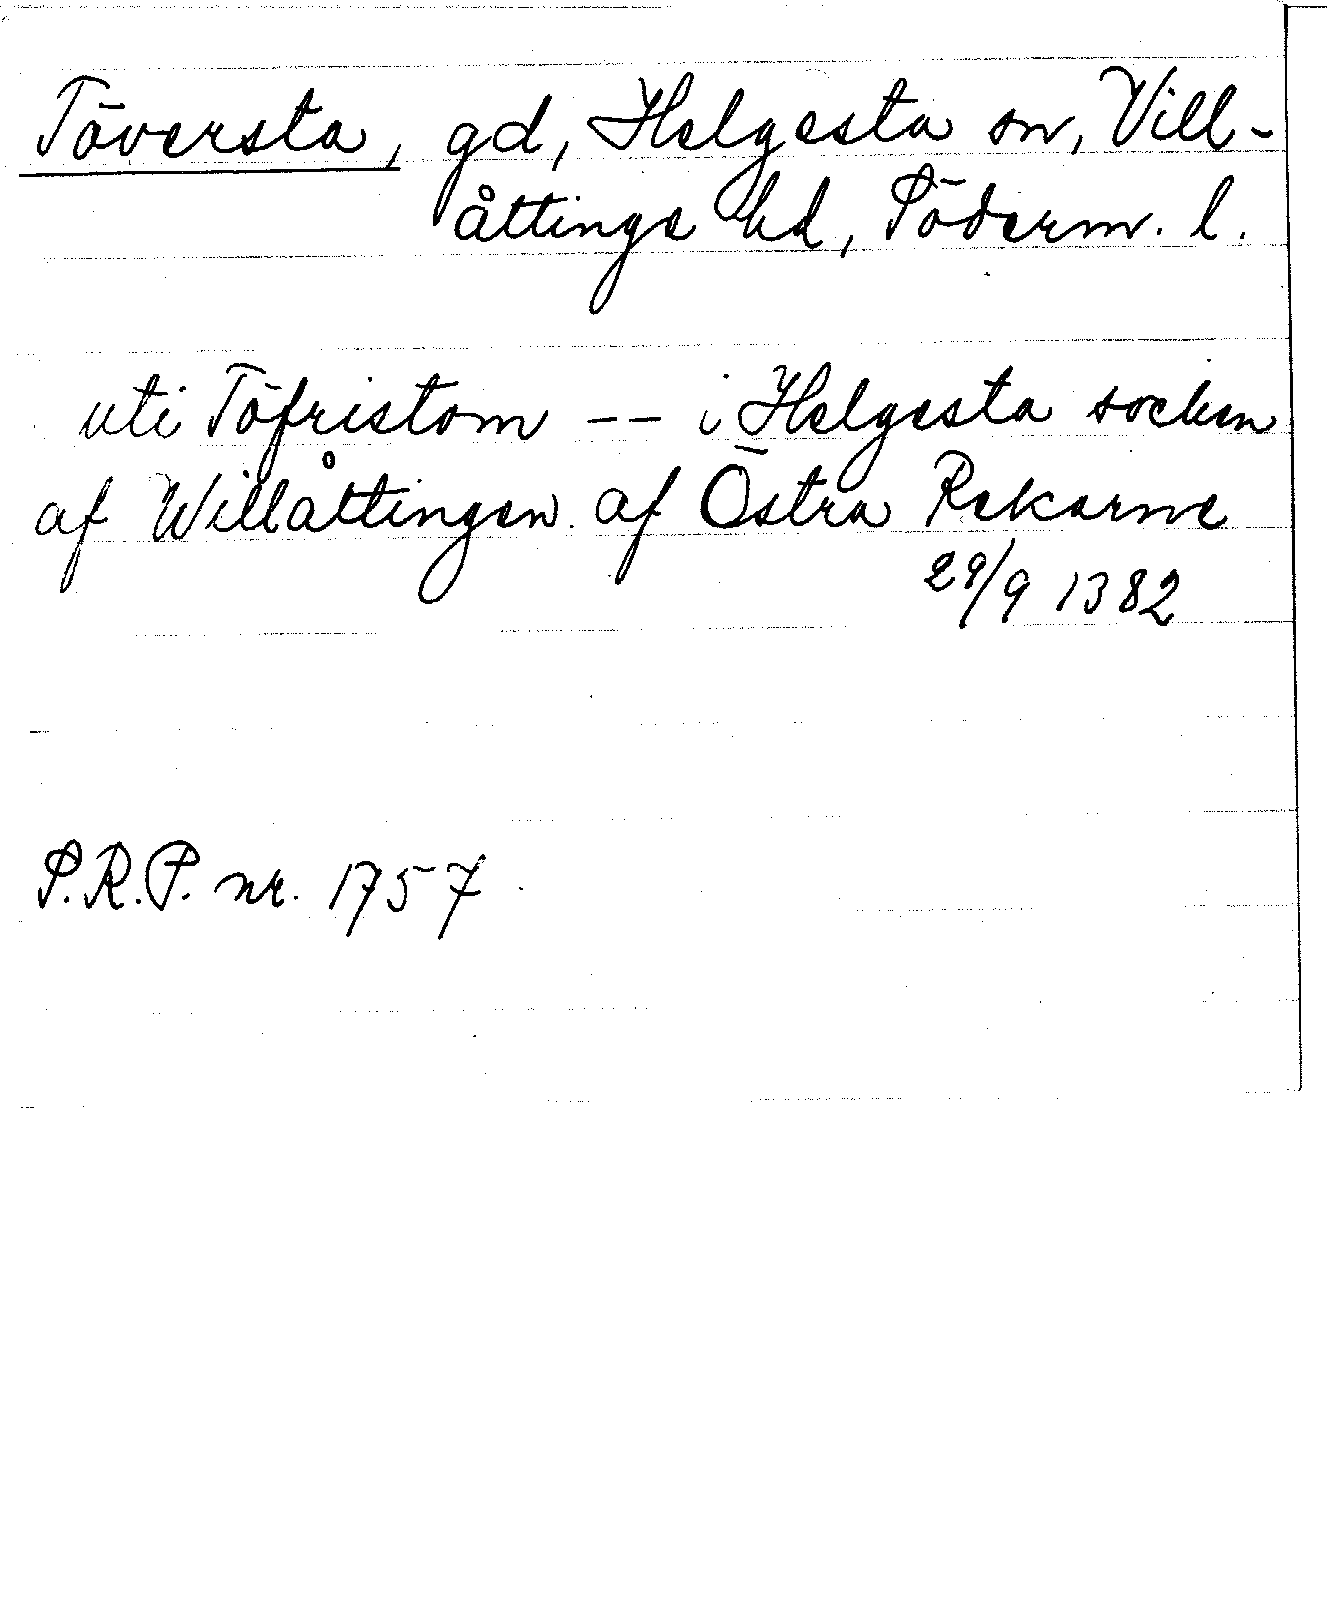 Töversta, gd, Helgesta sn, Vill-
åttinge hd, Söderm. l.
uti Töfristom -- i Helgesta socken
af Willåttingen af Östra Rekarne
29/9 1382
S.R.P. nr. 1757